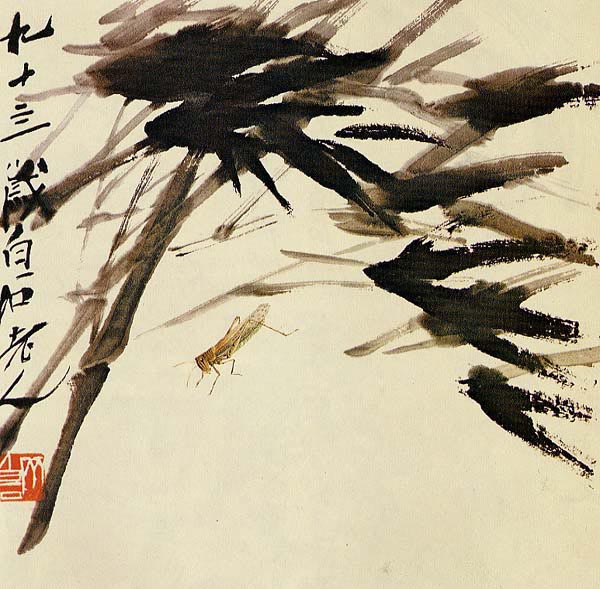 九十三歲白石老人